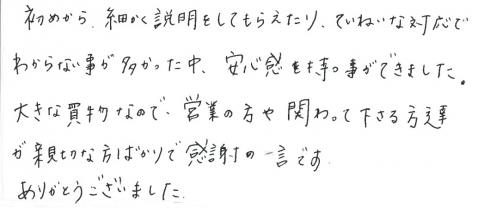 初めから、細かく説明をしてもらえたり、ていねいな対応で
わからない事が多かった中、安心感を持つ事ができました。
大きな買物なので、営業の方や関わって下さる方達
が親切な方ばかりで感謝の一言です
ありがとうございました。